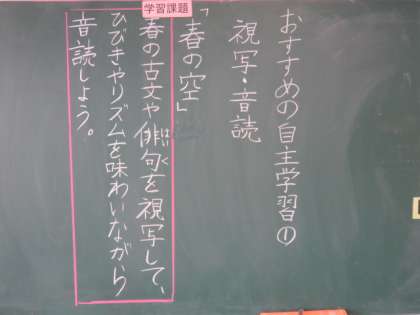 おすすめの自主学習①
視写・音読
「春の空」
学習課題
春の古文や俳句を視写して、
はいく
ひびきやリズムを味わいながら
音読しよう。